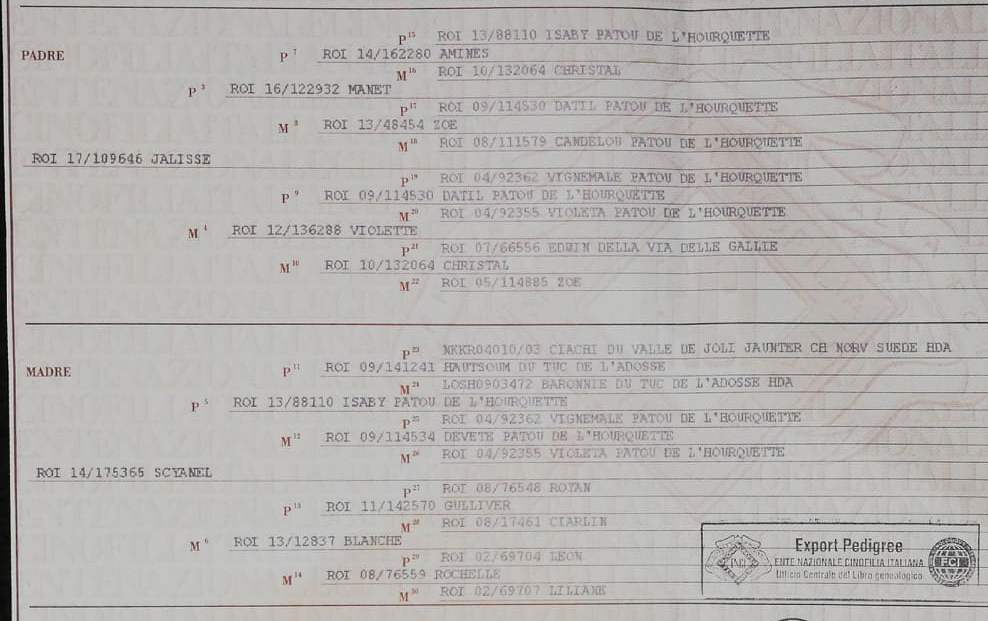 P 15 ROI 13/88110 ISABY PATOU DE L'HOURQUETTE
PADRE P 7 ROI 14/162280 AMINES
M 16 ROI 10/132064 CHRISTAL
P 3 ROI 16/122932 MANET
P 17 ROI 09/114530 DATIL PATOU DE L'HOURQUETTE
M 8 ROI 13/48454 ZOE
M 18 ROI 08/111579 CANDELOU PATOU DE L'HOURQUETTE
ROI 17/109646 JALISSE
P 19 ROI 04/92362 VIGNEMALE PATOU DE L'HOURQUETTE
P 9 ROI 09/114530 DATIL PATOU DE L'HOURQUETTE
M 20 ROI 04/92355 VIOLETA PATOU DE L'HOURQUETTE
M 4 ROI 12/136288 VIOLETTE
P 21 ROI 07/66556 EDWIN DELLA VIA DELLE GALLIE
M 10 ROI 10/132064 CHRISTAL
M 22 ROI 05/114885 ZOE
P 23 NKKR04010/03 CIACHI DU VALLE DE JOLI JAUNTER CH NORV SUEDE HDA
MADRE P 11 ROI 09/141241 HAUTSOUM DU TUC DE L'ADOSSE
M 24 LOSH0903472 BARONNIE DU TUC DE L'ADOSSE HDA
P 5 ROI 13/88110 ISABY PATOU DE L'HOURQUETTE
P 25 ROI 04/92362 VIGNEMALE PATOU DE L'HOURQUETTE
M 12 ROI 09/114534 DEVETE PATOU DE L'HOURQUETTE
M 26 ROI 04/92355 VIOLETA PATOU DE L'HOURQUETTE
ROI 14/175365 SCYANEL
P 27 ROI 08/76548 ROYAN
P 13 ROI 11/142570 GULLIVER
M 28 ROI 08/17461 CIARLIN
M 6 ROI 13/12837 BLANCHE
P 29 ROI 02/69704 LEON
M 14 ROI 08/76559 ROCHELLE
M 30 ROI 02/69707 LILIANE
Export Pedigree
ENTE NAZIONALE CINOFILIA ITALIANA
Ufficio Centrale del Libro genealogico
FCI